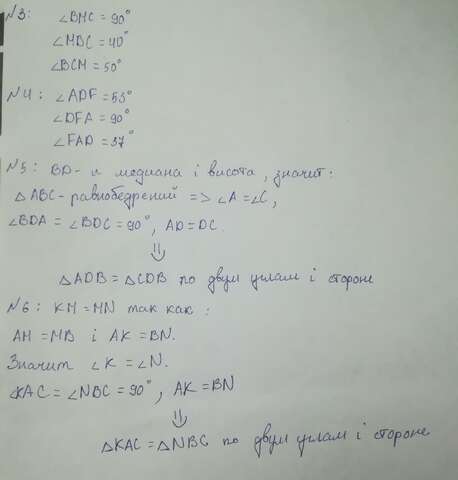 №3: ∠BMC = 90°
∠MBC = 40°
∠BCM = 50°
№4: ∠ADF = 53°
∠DFA = 90°
∠FAD = 37°
№5: BD - и медиана і висота, значит:
△ABC - равнобедрений => ∠A = ∠C,
∠BDA = ∠BDC = 90°, AD = DC.
⇓
△ADB = △CDB по двум углам і стороне
№6: KM = MN так как:
AM = MB і AK = BN.
Значит ∠K = ∠N.
∠KAC = ∠NBC = 90°, AK = BN
⇓
△KAC = △NBC по двум углам і стороне